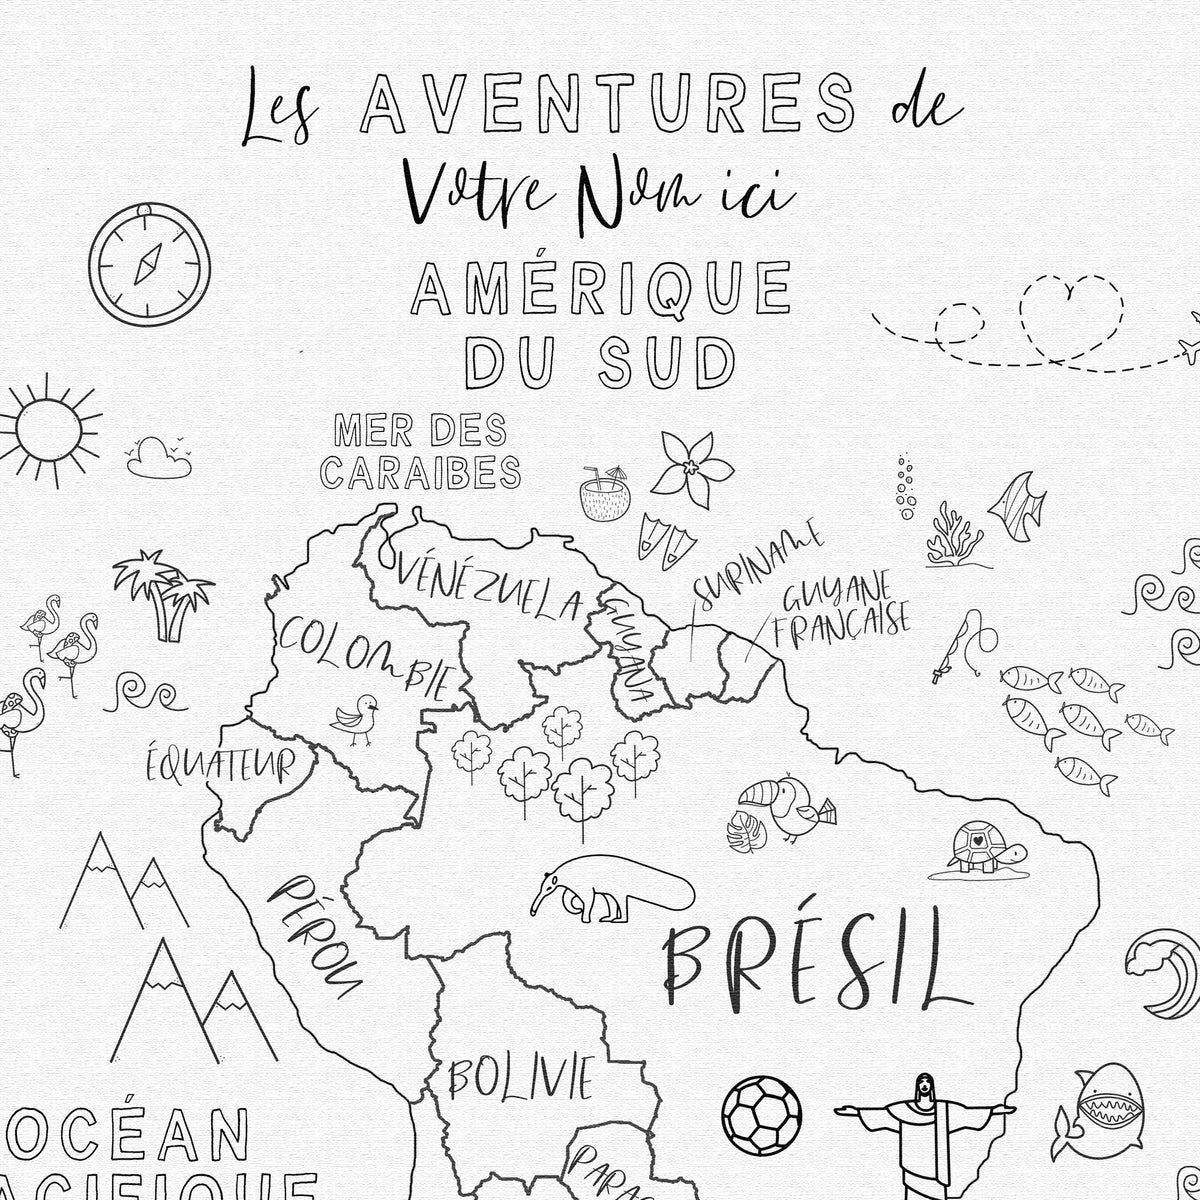 Les AVENTURES de
Votre Nom ici
AMÉRIQUE
DU SUD
MER DES
CARAIBES
VÉNÉZUELA
SURINAME
GUYANE
FRANÇAISE
GUYANA
COLOMBIE
ÉQUATEUR
PÉROU
BRÉSIL
BOLIVIE
OCÉAN
ACIFIQUE
PARAG